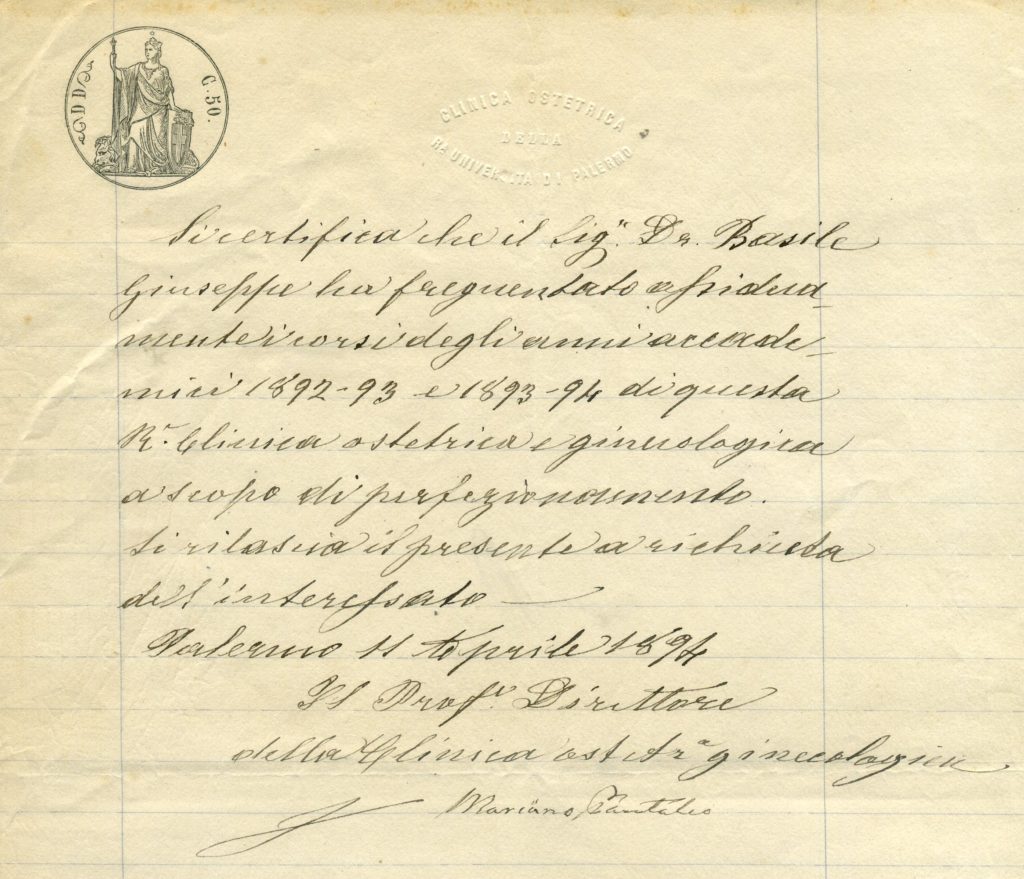 DD
G. 50.
CLINICA OSTETRICA
DELLA
Rª UNIVERSITA DI PALERMO
Si certifica che il Sigr. Dr. Basile
Giuseppe ha frequentato assidua=
mente i corsi degli anni accade=
mici 1892-93 e 1893-94 di questa
R. Clinica ostetrica e ginecologica
a scopo di perfezionamento.
Si rilascia il presente a richiesta
dell'interessato —
Palermo 11 Aprile 1894
Il Profr. Direttore
della Clinica ostetra ginecologica
Mariano Pantaleo